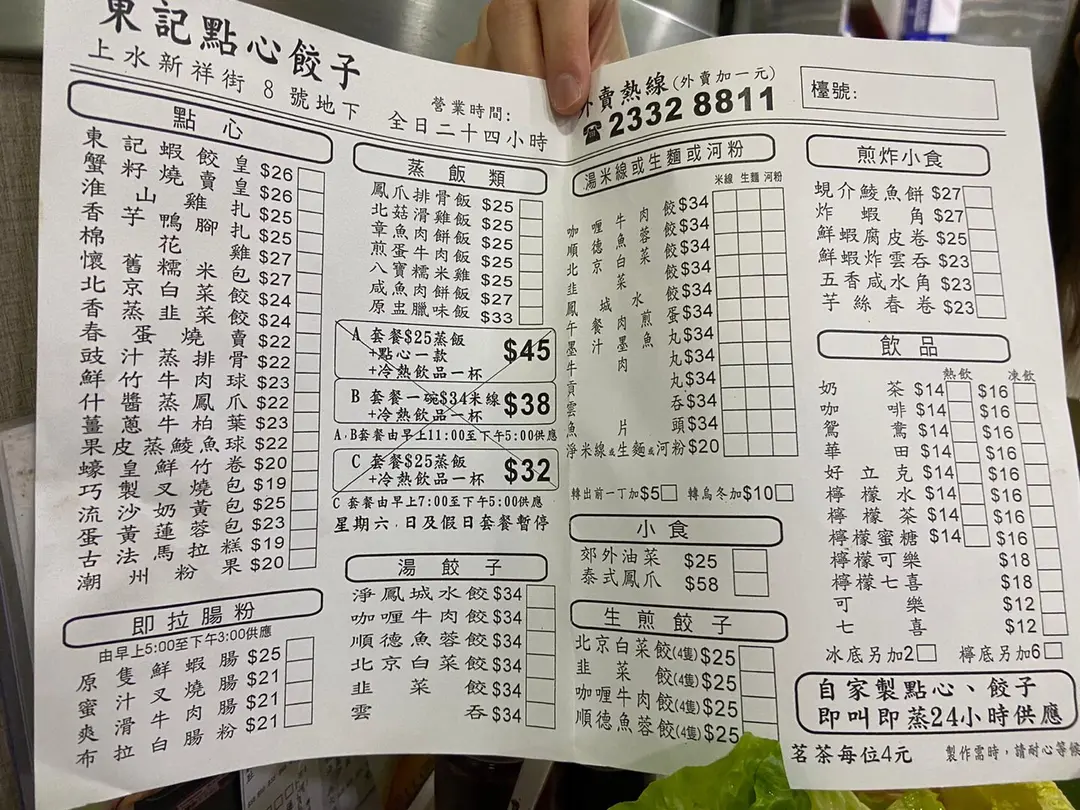 東記點心餃子
上水新祥街8號地下
營業時間:
全日二十四小時
外賣熱線(外賣加一元)
☎2332 8811
檯號:
點心
東記蝦餃皇 $26
蟹籽燒賣皇 $26
淮山雞扎 $25
香芋鴨腳扎 $25
棉花雞 $27
懷舊糯米包 $27
北京白菜餃 $24
香蒸韭菜餃 $24
春蛋燒賣 $22
豉汁蒸排骨 $22
鮮竹牛肉球 $23
什醬蒸鳳爪 $22
薑蔥牛柏葉 $23
果皮蒸鯪魚球 $22
蠔皇鮮竹卷 $20
巧製叉燒包 $19
流沙奶黃包 $25
蛋黃蓮蓉包 $23
古法馬拉糕 $19
潮州粉果 $20
即拉腸粉
由早上5:00至下午3:00供應
原隻鮮蝦腸 $25
蜜汁叉燒腸 $21
爽滑牛肉腸 $21
布拉白腸粉 $21
蒸飯類
鳳爪排骨飯 $25
北菇滑雞飯 $25
章魚肉餅飯 $25
煎蛋牛肉飯 $25
八寶糯米雞 $25
咸魚肉餅飯 $27
原盅臘味飯 $33
A 套餐$25蒸飯
+點心一款
+冷熱飲品一杯 $45
B 套餐一碗$34米線
+冷熱飲品一杯 $38
A,B套餐由早上11:00至下午5:00供應
C 套餐$25蒸飯
+冷熱飲品一杯 $32
C 套餐由早上7:00至下午5:00供應
星期六,日及假日套餐暫停
湯餃子
淨鳳城水餃 $34
咖喱牛肉餃 $34
順德魚蓉餃 $34
北京白菜餃 $34
韭菜餃 $34
雲吞 $34
湯米線或生麵或河粉
米線 生麵 河粉
咖喱牛肉餃 $34
順德魚蓉餃 $34
北京白菜餃 $34
韭菜餃
鳳城水餃 $34
午餐肉煎蛋 $34
墨汁魚丸 $34
牛肉丸 $34
貢丸 $34
雲吞 $34
魚片頭 $34
淨米線或生麵或河粉 $20
轉出前一丁加$5 轉烏冬加$10
小食
郊外油菜 $25
泰式鳳爪 $58
生煎餃子
北京白菜餃(4隻) $25
韭菜餃(4隻) $25
咖喱牛肉餃(4隻) $25
順德魚蓉餃(4隻) $25
煎炸小食
蜆介鯪魚餅 $27
炸蝦角 $27
鮮蝦腐皮卷 $25
鮮蝦炸雲吞 $23
五香咸水角 $23
芋絲春卷 $23
飲品
熱飲 凍飲
奶茶 $14 $16
咖啡 $14 $16
鴛鴦 $14 $16
華田 $14 $16
好立克 $14 $16
檸檬水 $14 $16
檸檬茶 $14 $16
檸檬蜜糖 $14 $16
檸檬可樂 $18
檸檬七喜 $18
可樂 $12
七喜 $12
冰底另加2 檸底另加6
自家製點心、餃子
即叫即蒸24小時供應
茗茶每位4元
製作需時,請耐心等候